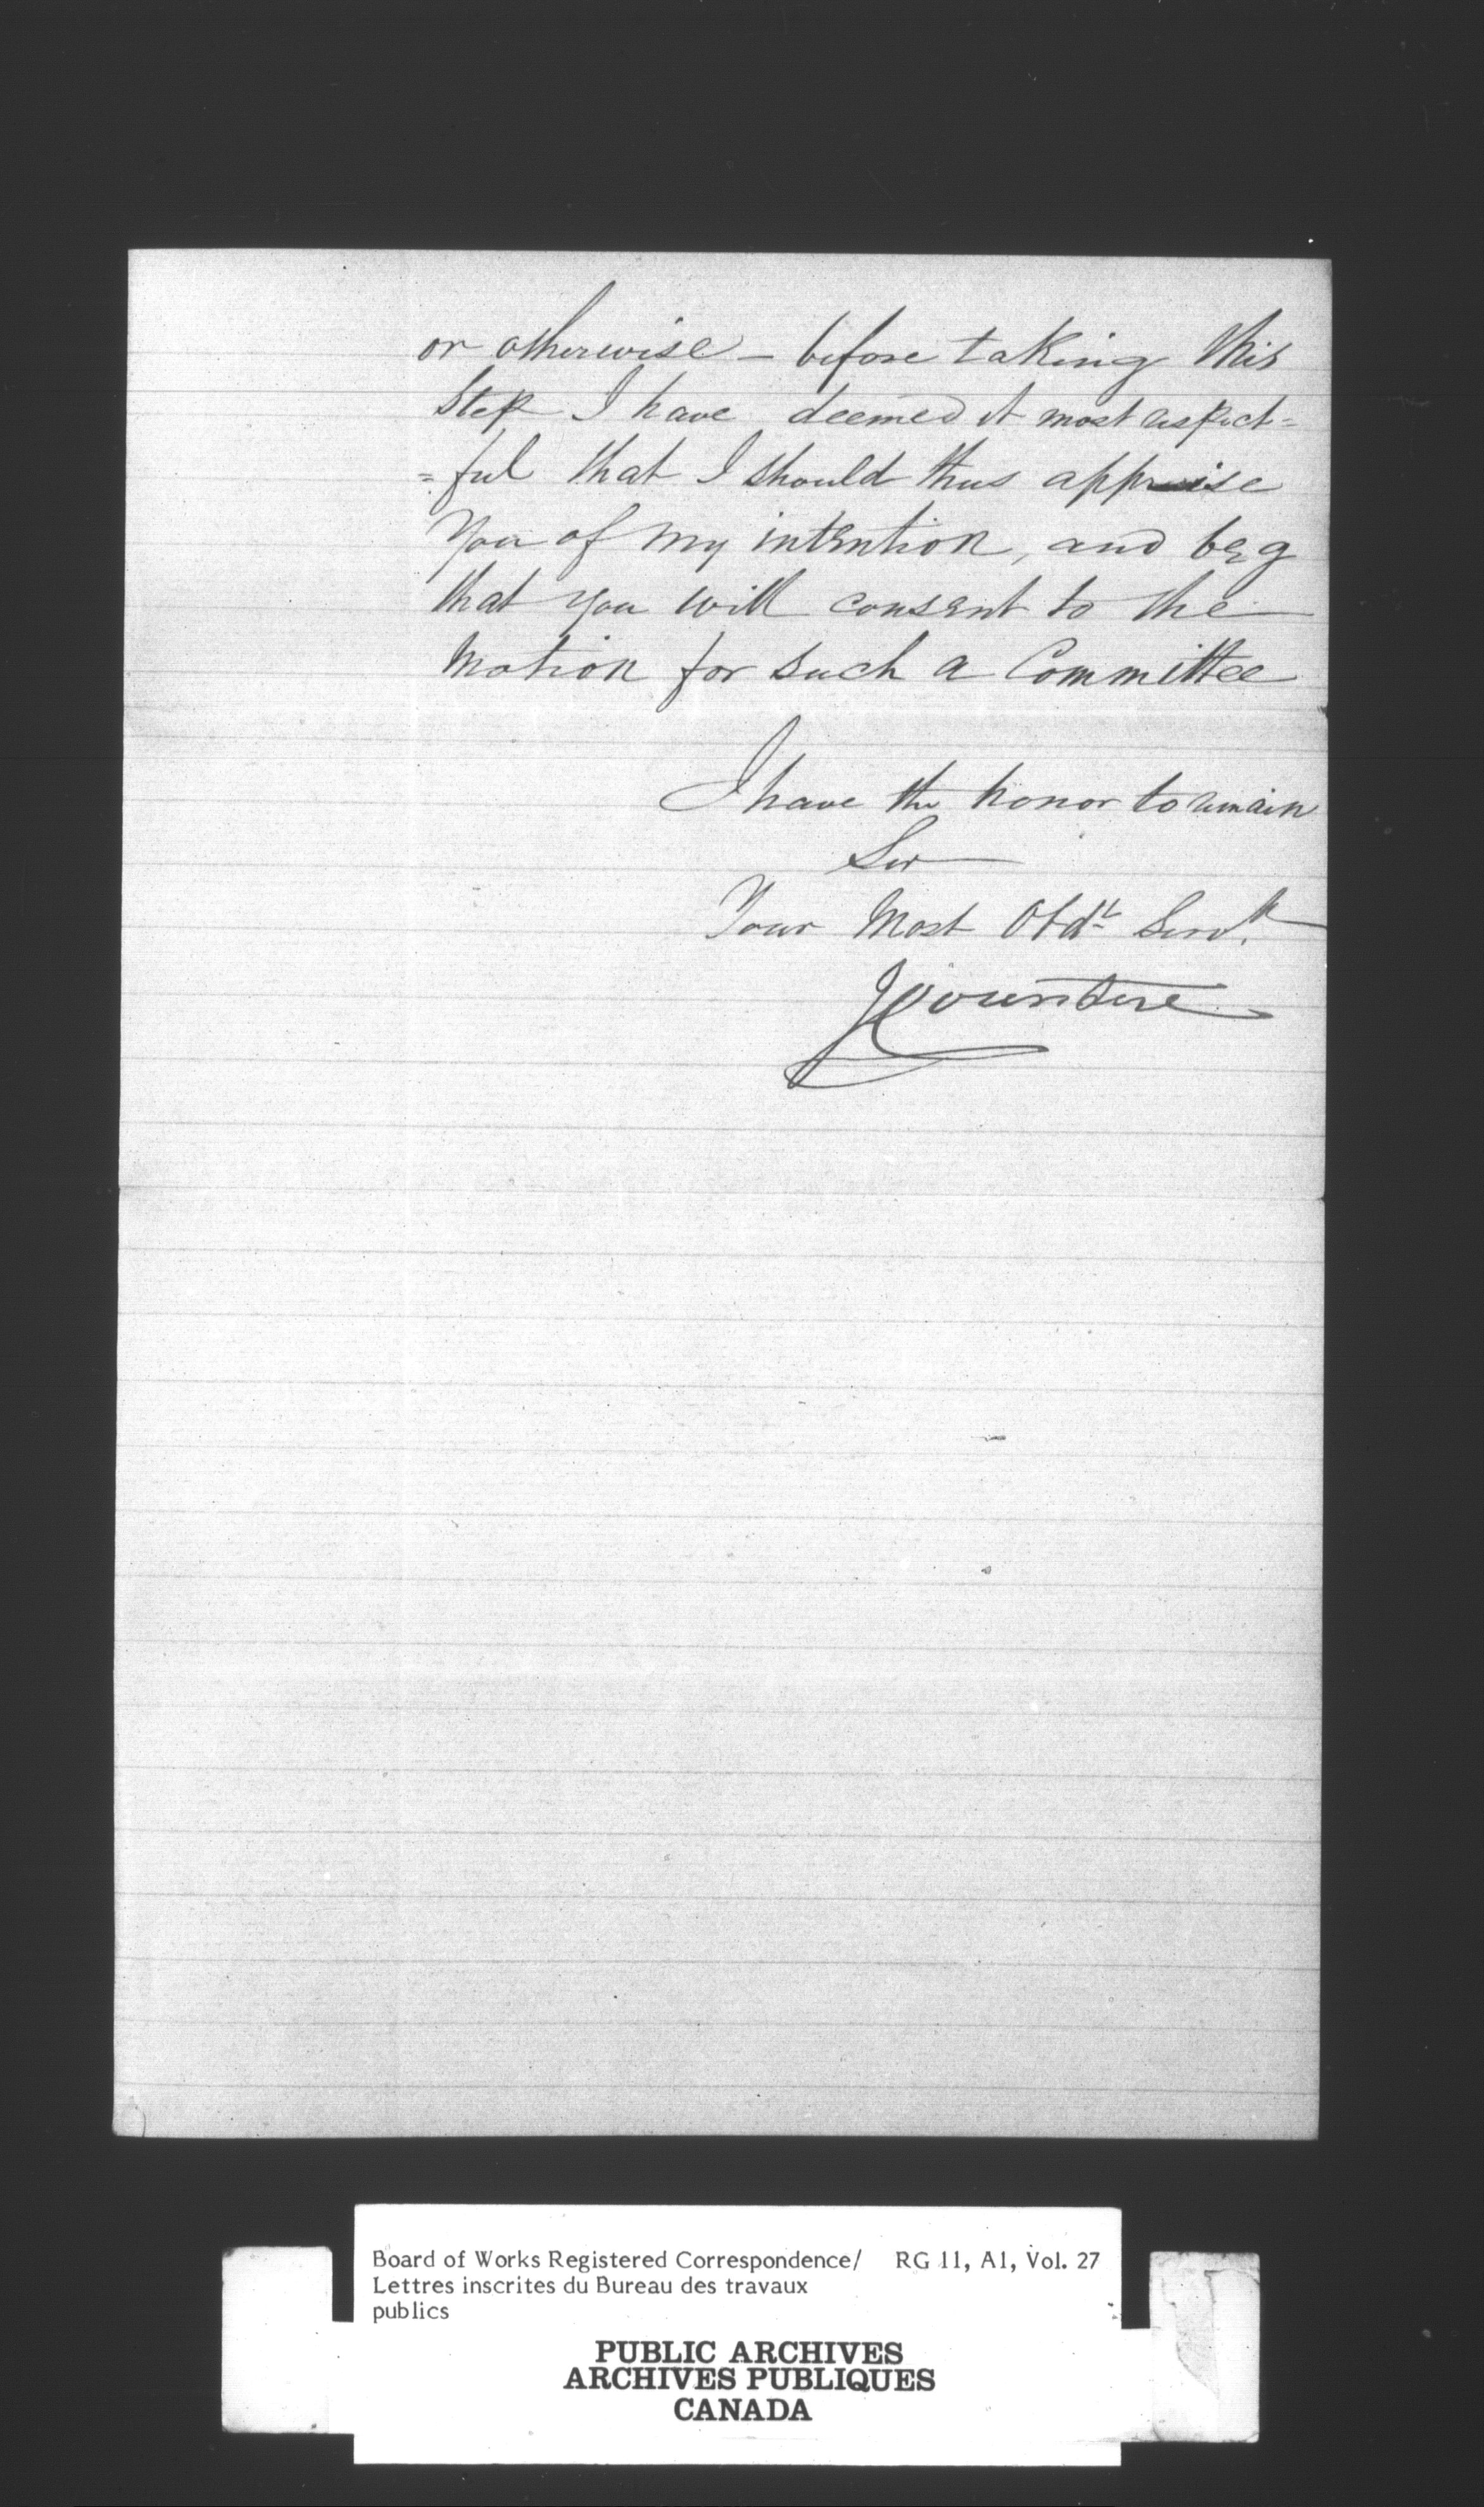 or otherwise – before taking this
step I have deemed it most respect=
=ful that I should thus apprise
You of my intention, and beg
that you will consent to the
motion for such a Committee
I have the honor to remain
Sir
Your Most Obdt Servt
Board of Works Registered Correspondence/ RG 11, A1, Vol. 27
Lettres inscrites du Bureau des travaux
publics
PUBLIC ARCHIVES
ARCHIVES PUBLIQUES
CANADA